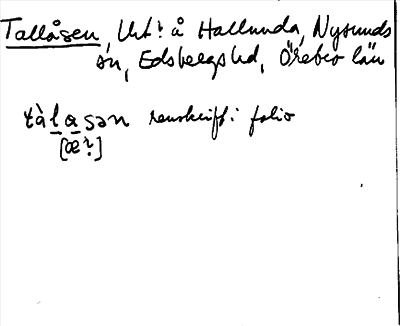 Tallåsen, Uht? å Hallunda, Nysunds
sn, Edsbergs hd, Örebro län
tàlasən renskrift i folio
[æ?]